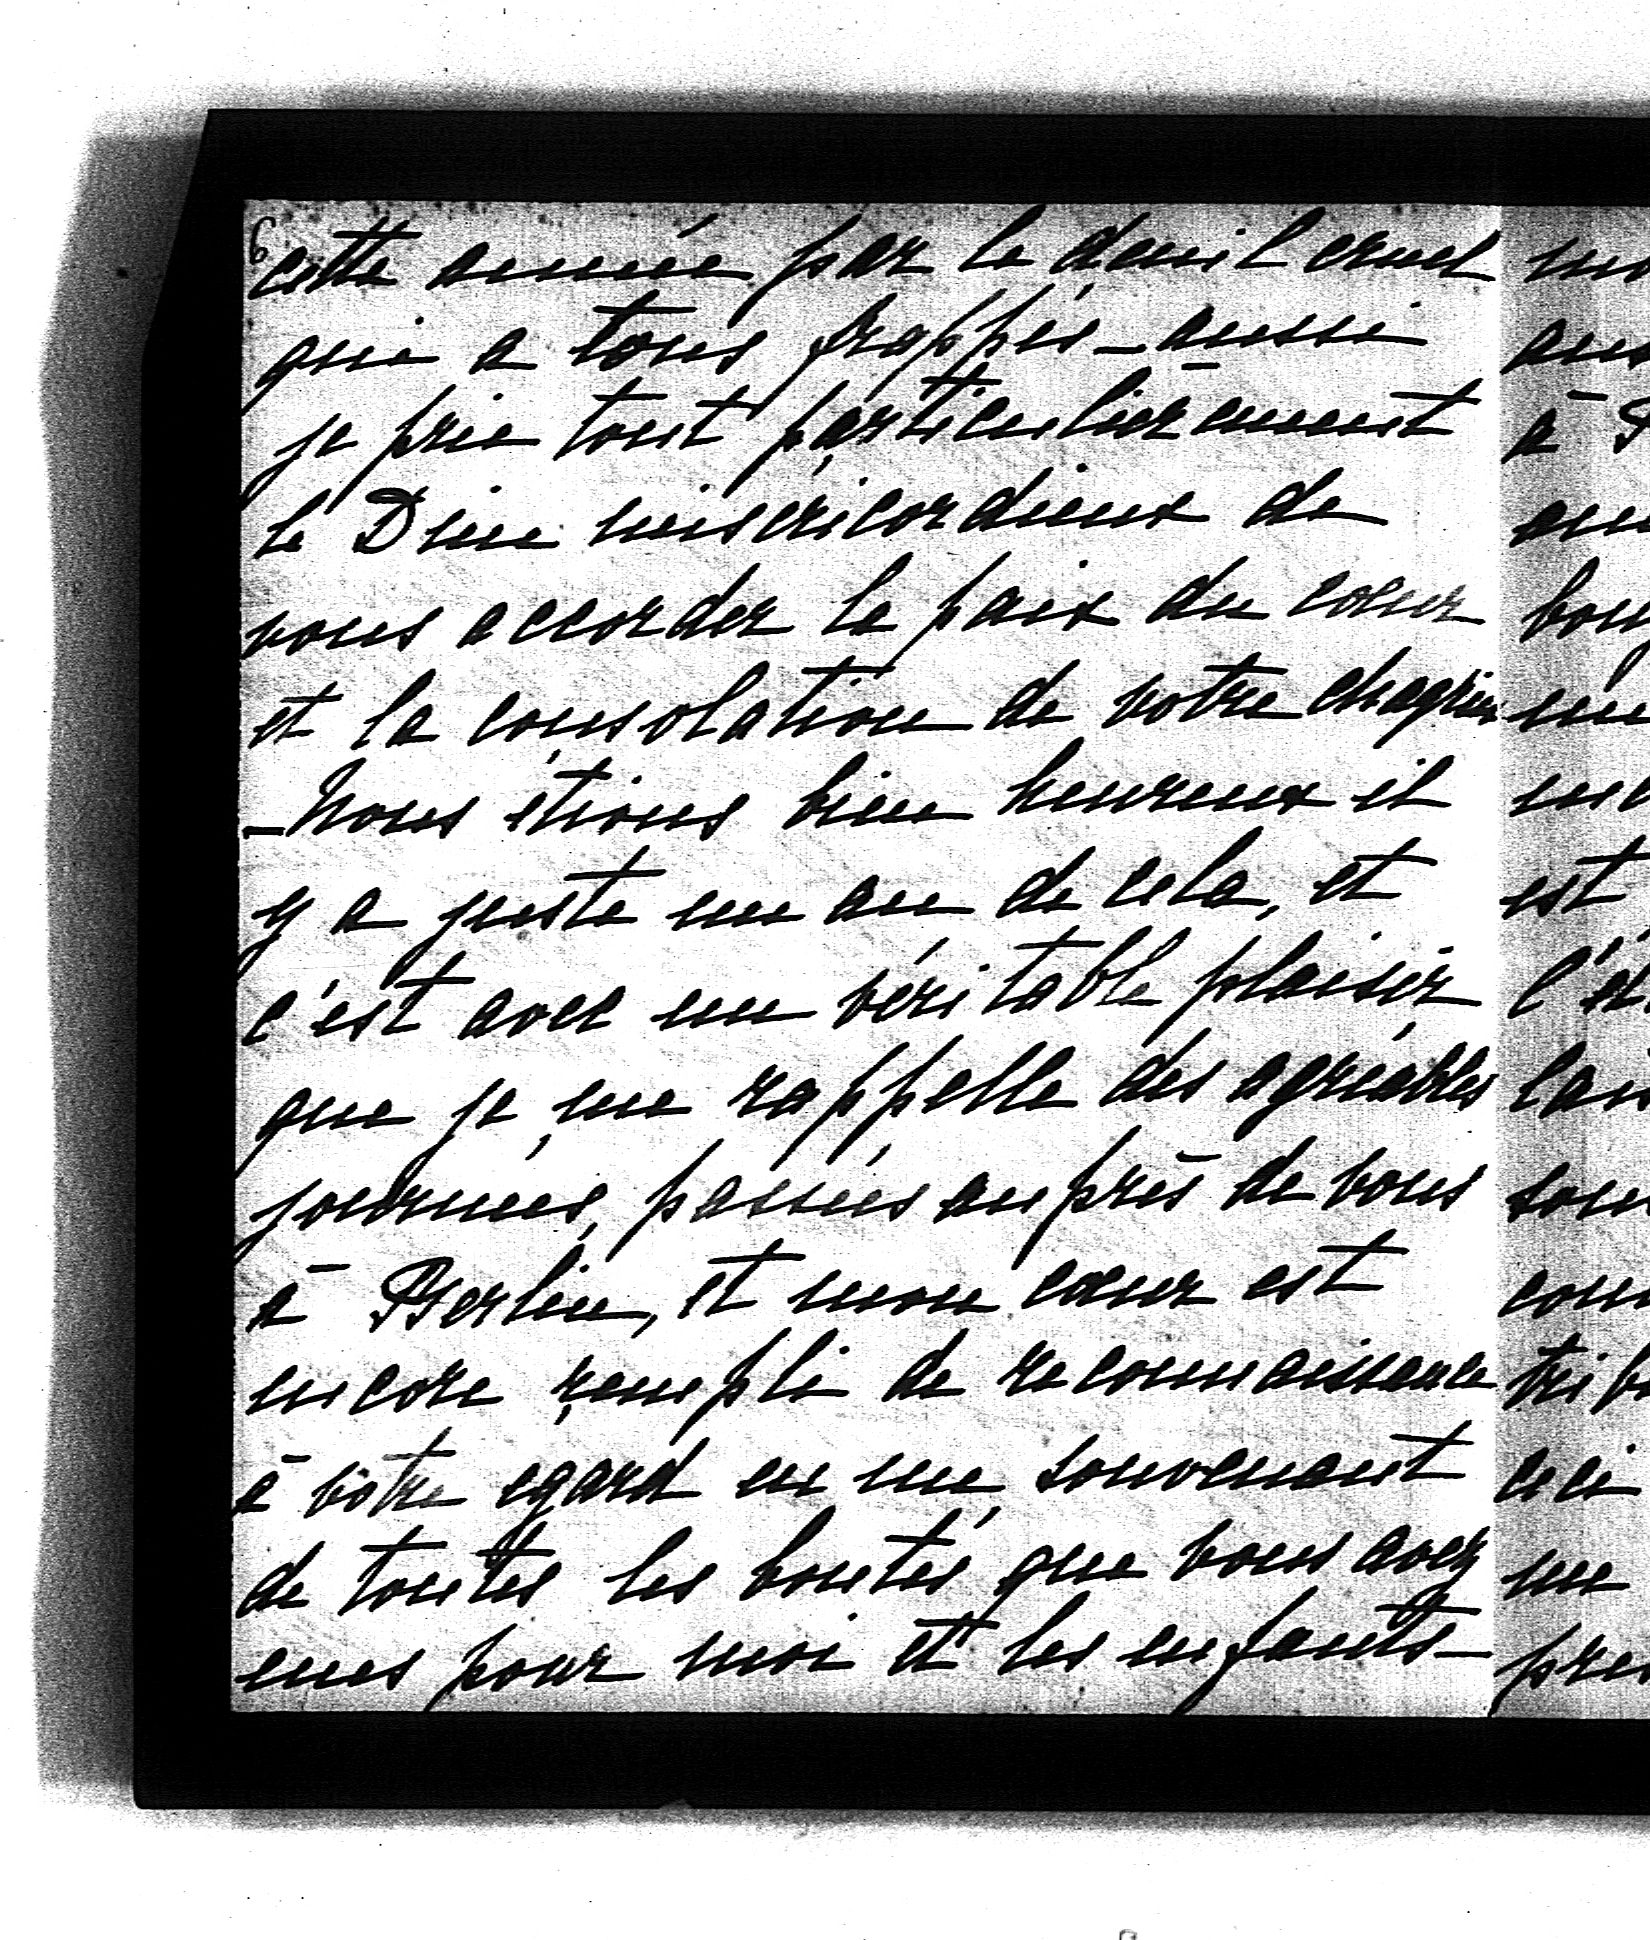 6
cette année par le deuil cruel
qui a tous frappés - aussi
je prie tout particulièrement
le Dieu misericordieux de
vous accorder la paix du coeur
et la consolation de votre chagrin
- Nous étions bien heureux il
y a juste un an de cela, et
c'est avec un véritable plaisir
que je me rappelle des agréables
journées, passées auprès de vous
à Berlin, et mon coeur est
encore rempli de reconnaissance
à votre egard en me souvenant
de toutes les bontés que vous avez
eues pour moi et les enfants -
à
est
ceci
me